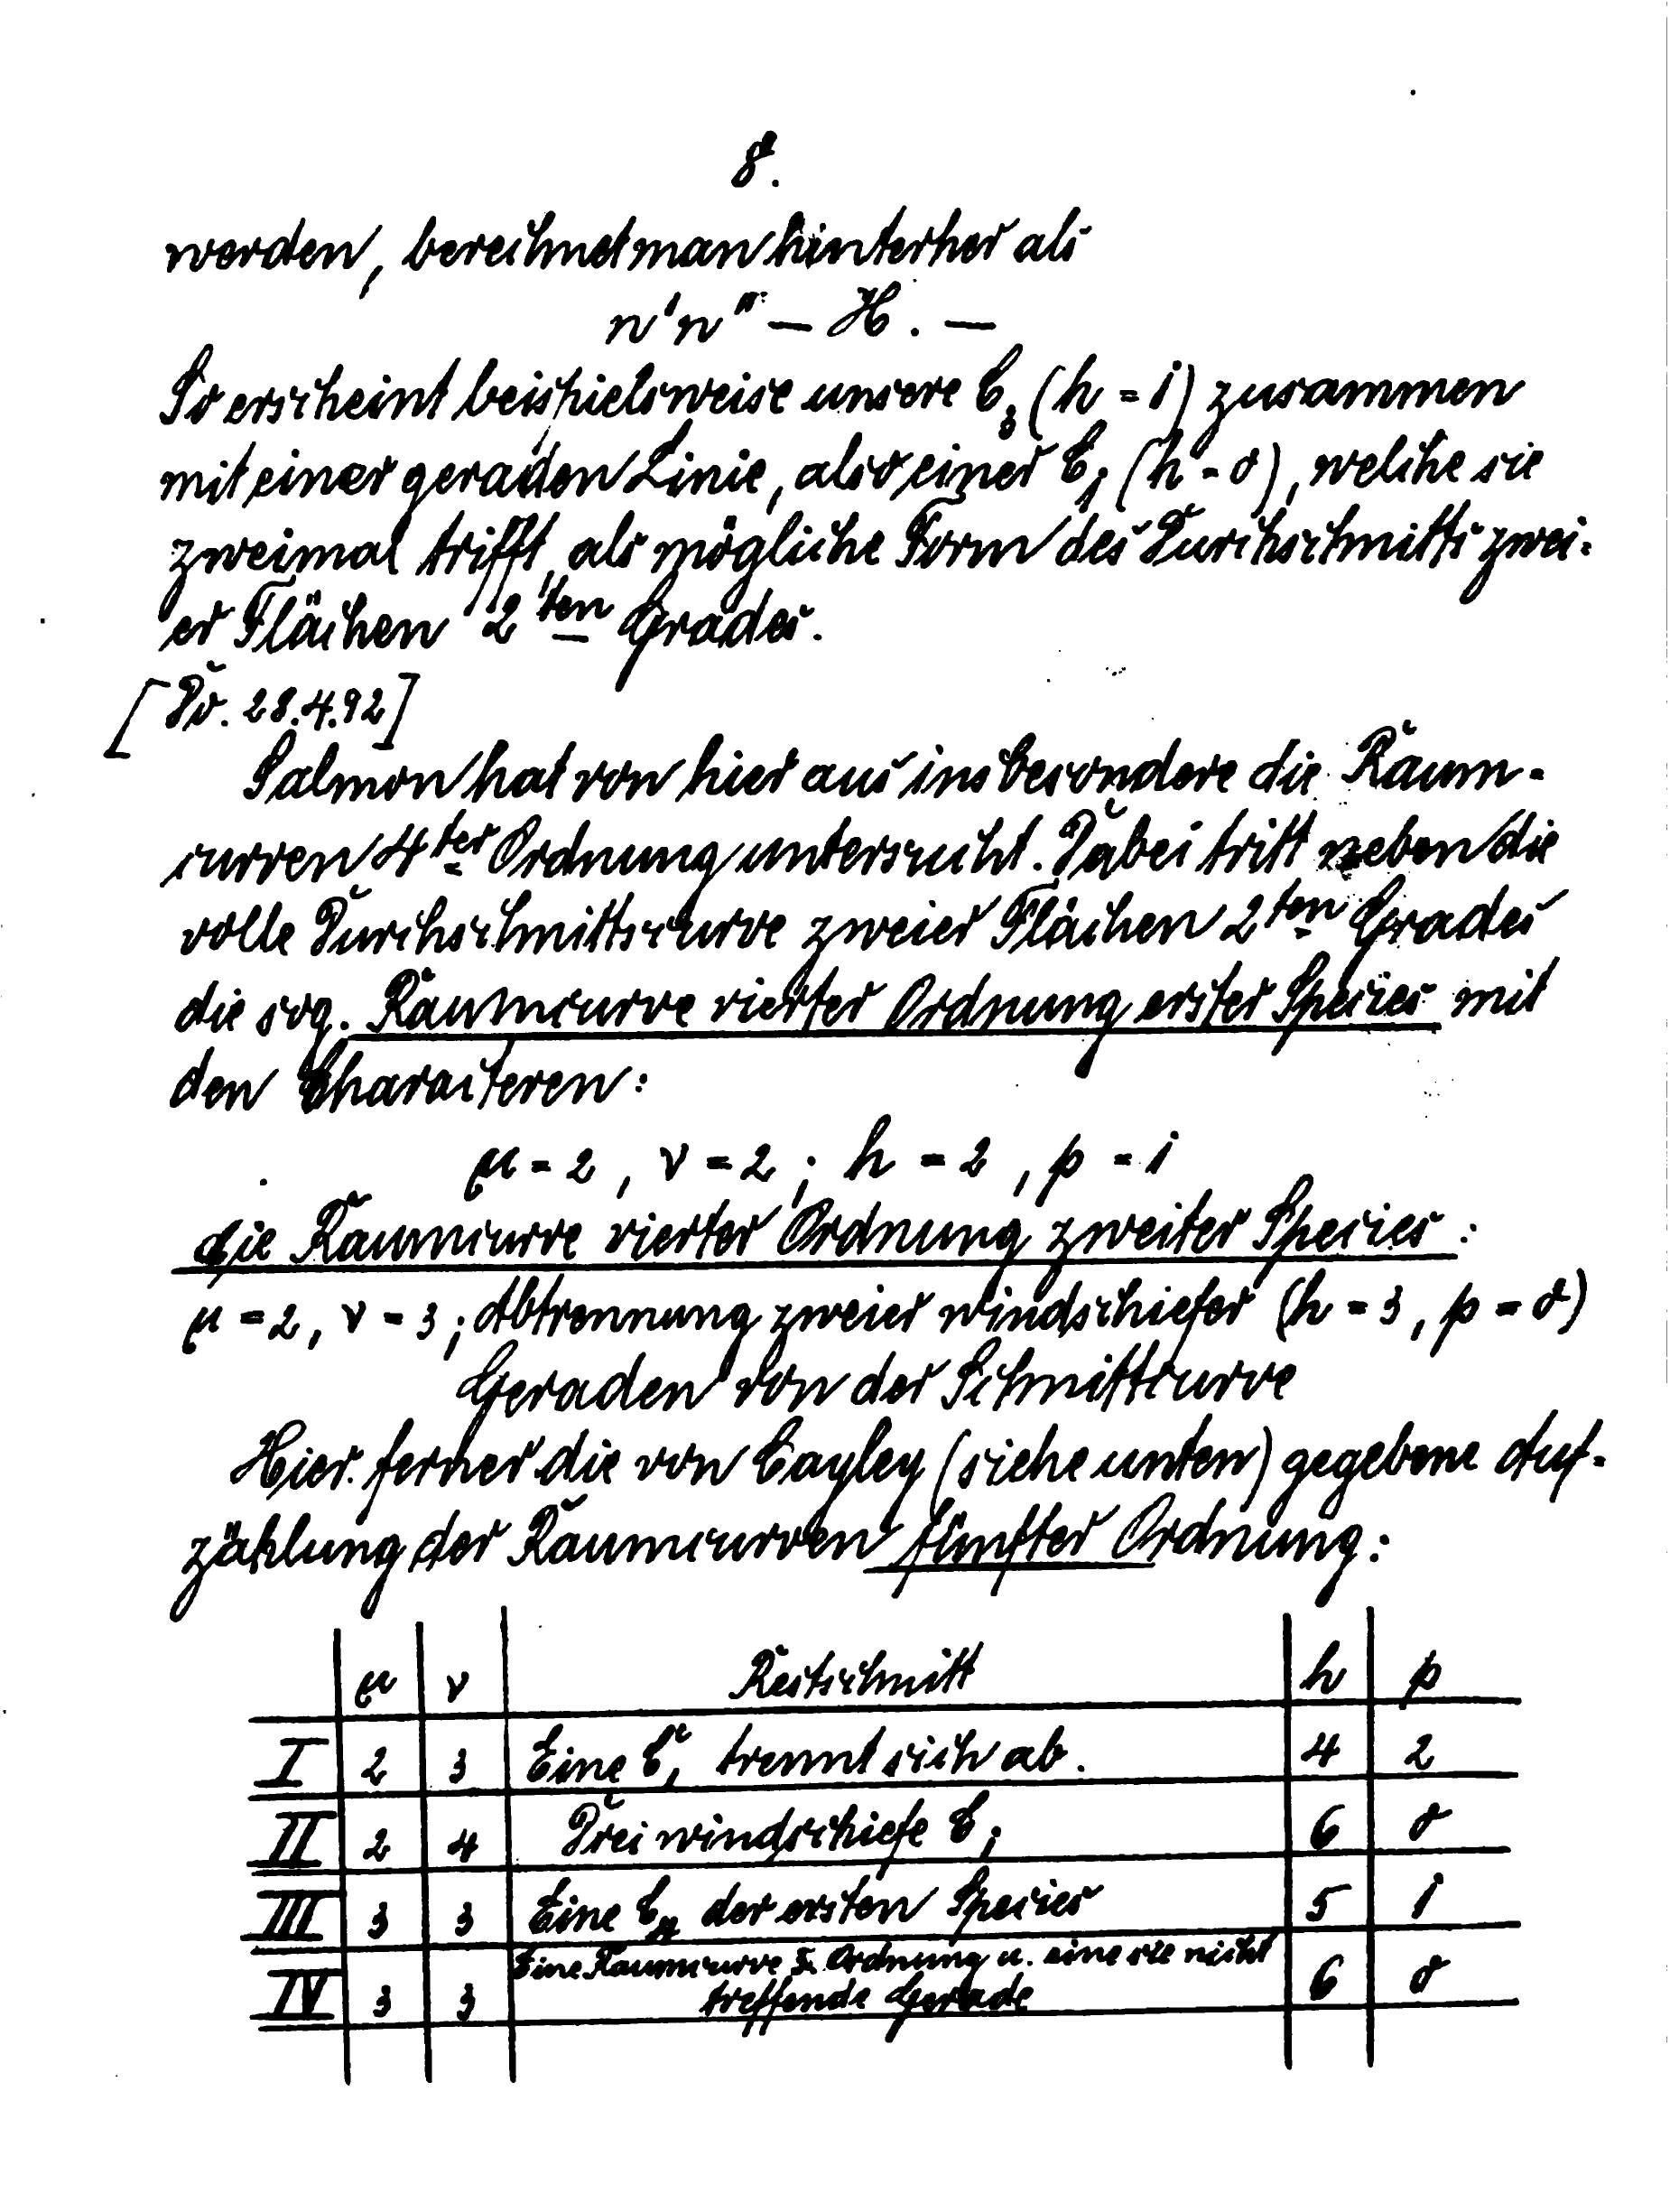 8.
werden, berechnet man hinterher als
n'n" — H. —
So erscheint beispielsweise unsere C₃ (h = 1) zusammen
mit einer geraden Linie, also einer C₁ (h = 0), welche sie
zweimal trifft, als mögliche Form des Durchschnitts zwei-
er Flächen 2ten Grades.
[Do. 28.4.92]
Salmon hat von hier aus insbesondere die Raum-
curven 4ter Ordnung untersucht. Dabei tritt neben die
volle Durchschnittscurve zweier Flächen 2ten Grades
die sog. Raumcurve vierter Ordnung erster Species mit
den Characteren:
μ = 2, ν = 2; h = 2, p = 1
die Raumcurve vierter Ordnung zweiter Species:
μ = 2, ν = 3; Abtrennung zweier windschiefer (h = 3, p = 0)
Geraden von der Schnittcurve
Hier ferner die von Cayley (siehe unten) gegebene Auf-
zählung der Raumcurven fünfter Ordnung:
μ ν Restschnitt h p
I 2 3 Eine C₁ trennt sich ab. 4 2
II 2 4 Drei windschiefe C₁ 6 0
III 3 3 Eine C₄ der ersten Species 5 1
IV 3 3 Eine Raumcurve 3. Ordnung u. eine sie nicht 6 0
treffende Gerade